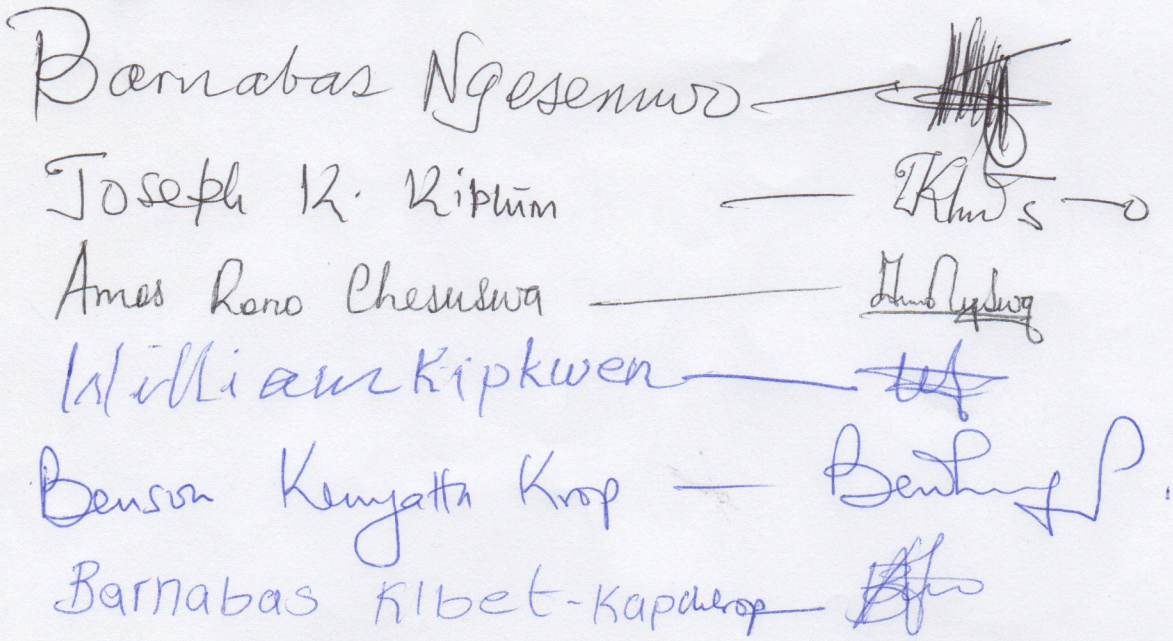 Barnabas Ngesenwo
Joseph K. Kiptum
Amos Rono Chesuswa
William Kipkwen
Benson Kenyatta Krop
Barnabas Kibet-Kapcherop